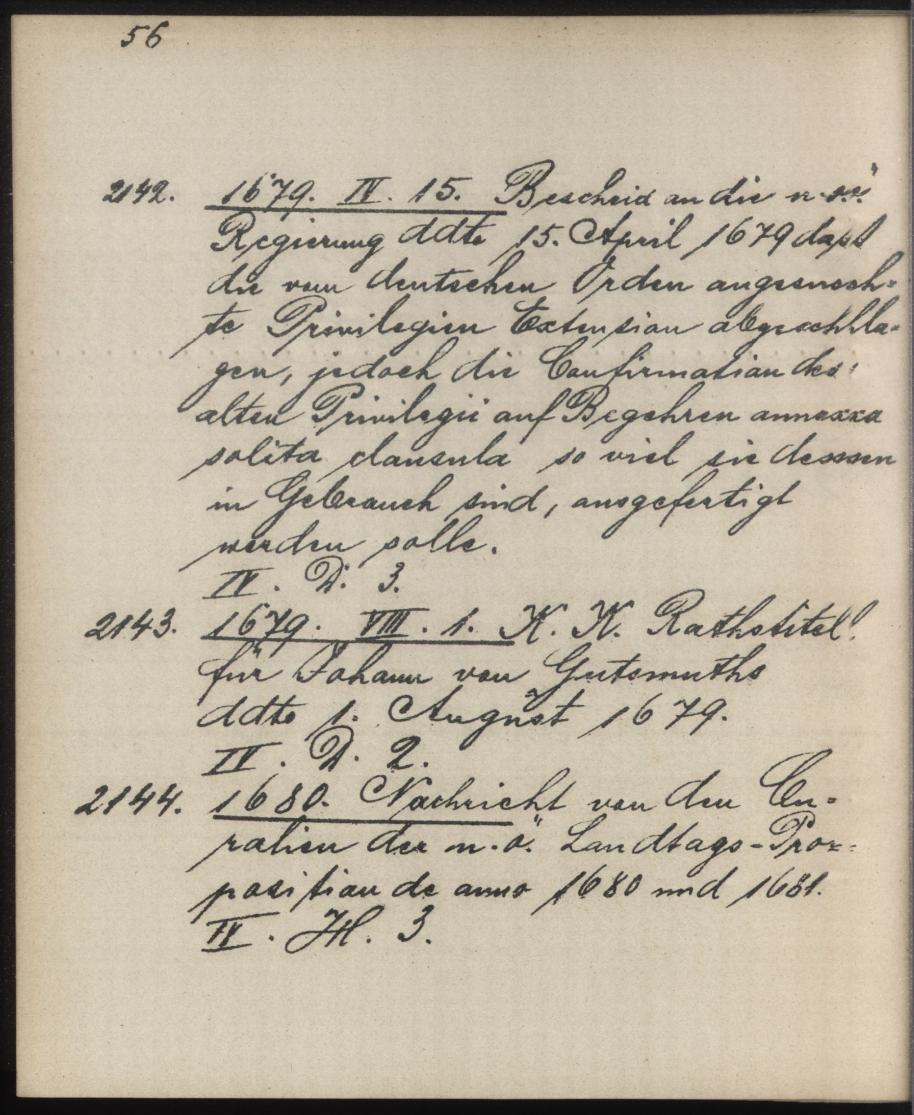 56
2142. 1679. IV. 15. Bescheid an die n.ö.
Regierung ddto 15. April 1679 daß
die vom deutschen Orden angesuch-
te Privilegien Extension abgeschla-
gen, jedoch die Confirmation des
alten Privilegii auf Begehren annexa
solita clausula so viel sie dessen
in Gebrauch sind, ausgefertigt
werden solle.
IV. D. 3.
2143. 1679. VIII. 1. K. K. Rathstitel
für Johann von Gutsmuths
ddto 1. August 1679.
IV. D. 2.
2144. 1680. Nachricht von den Cu-
ralien der n.ö. Landtags-Pro-
position de anno 1680 und 1681.
IV. H. 3.